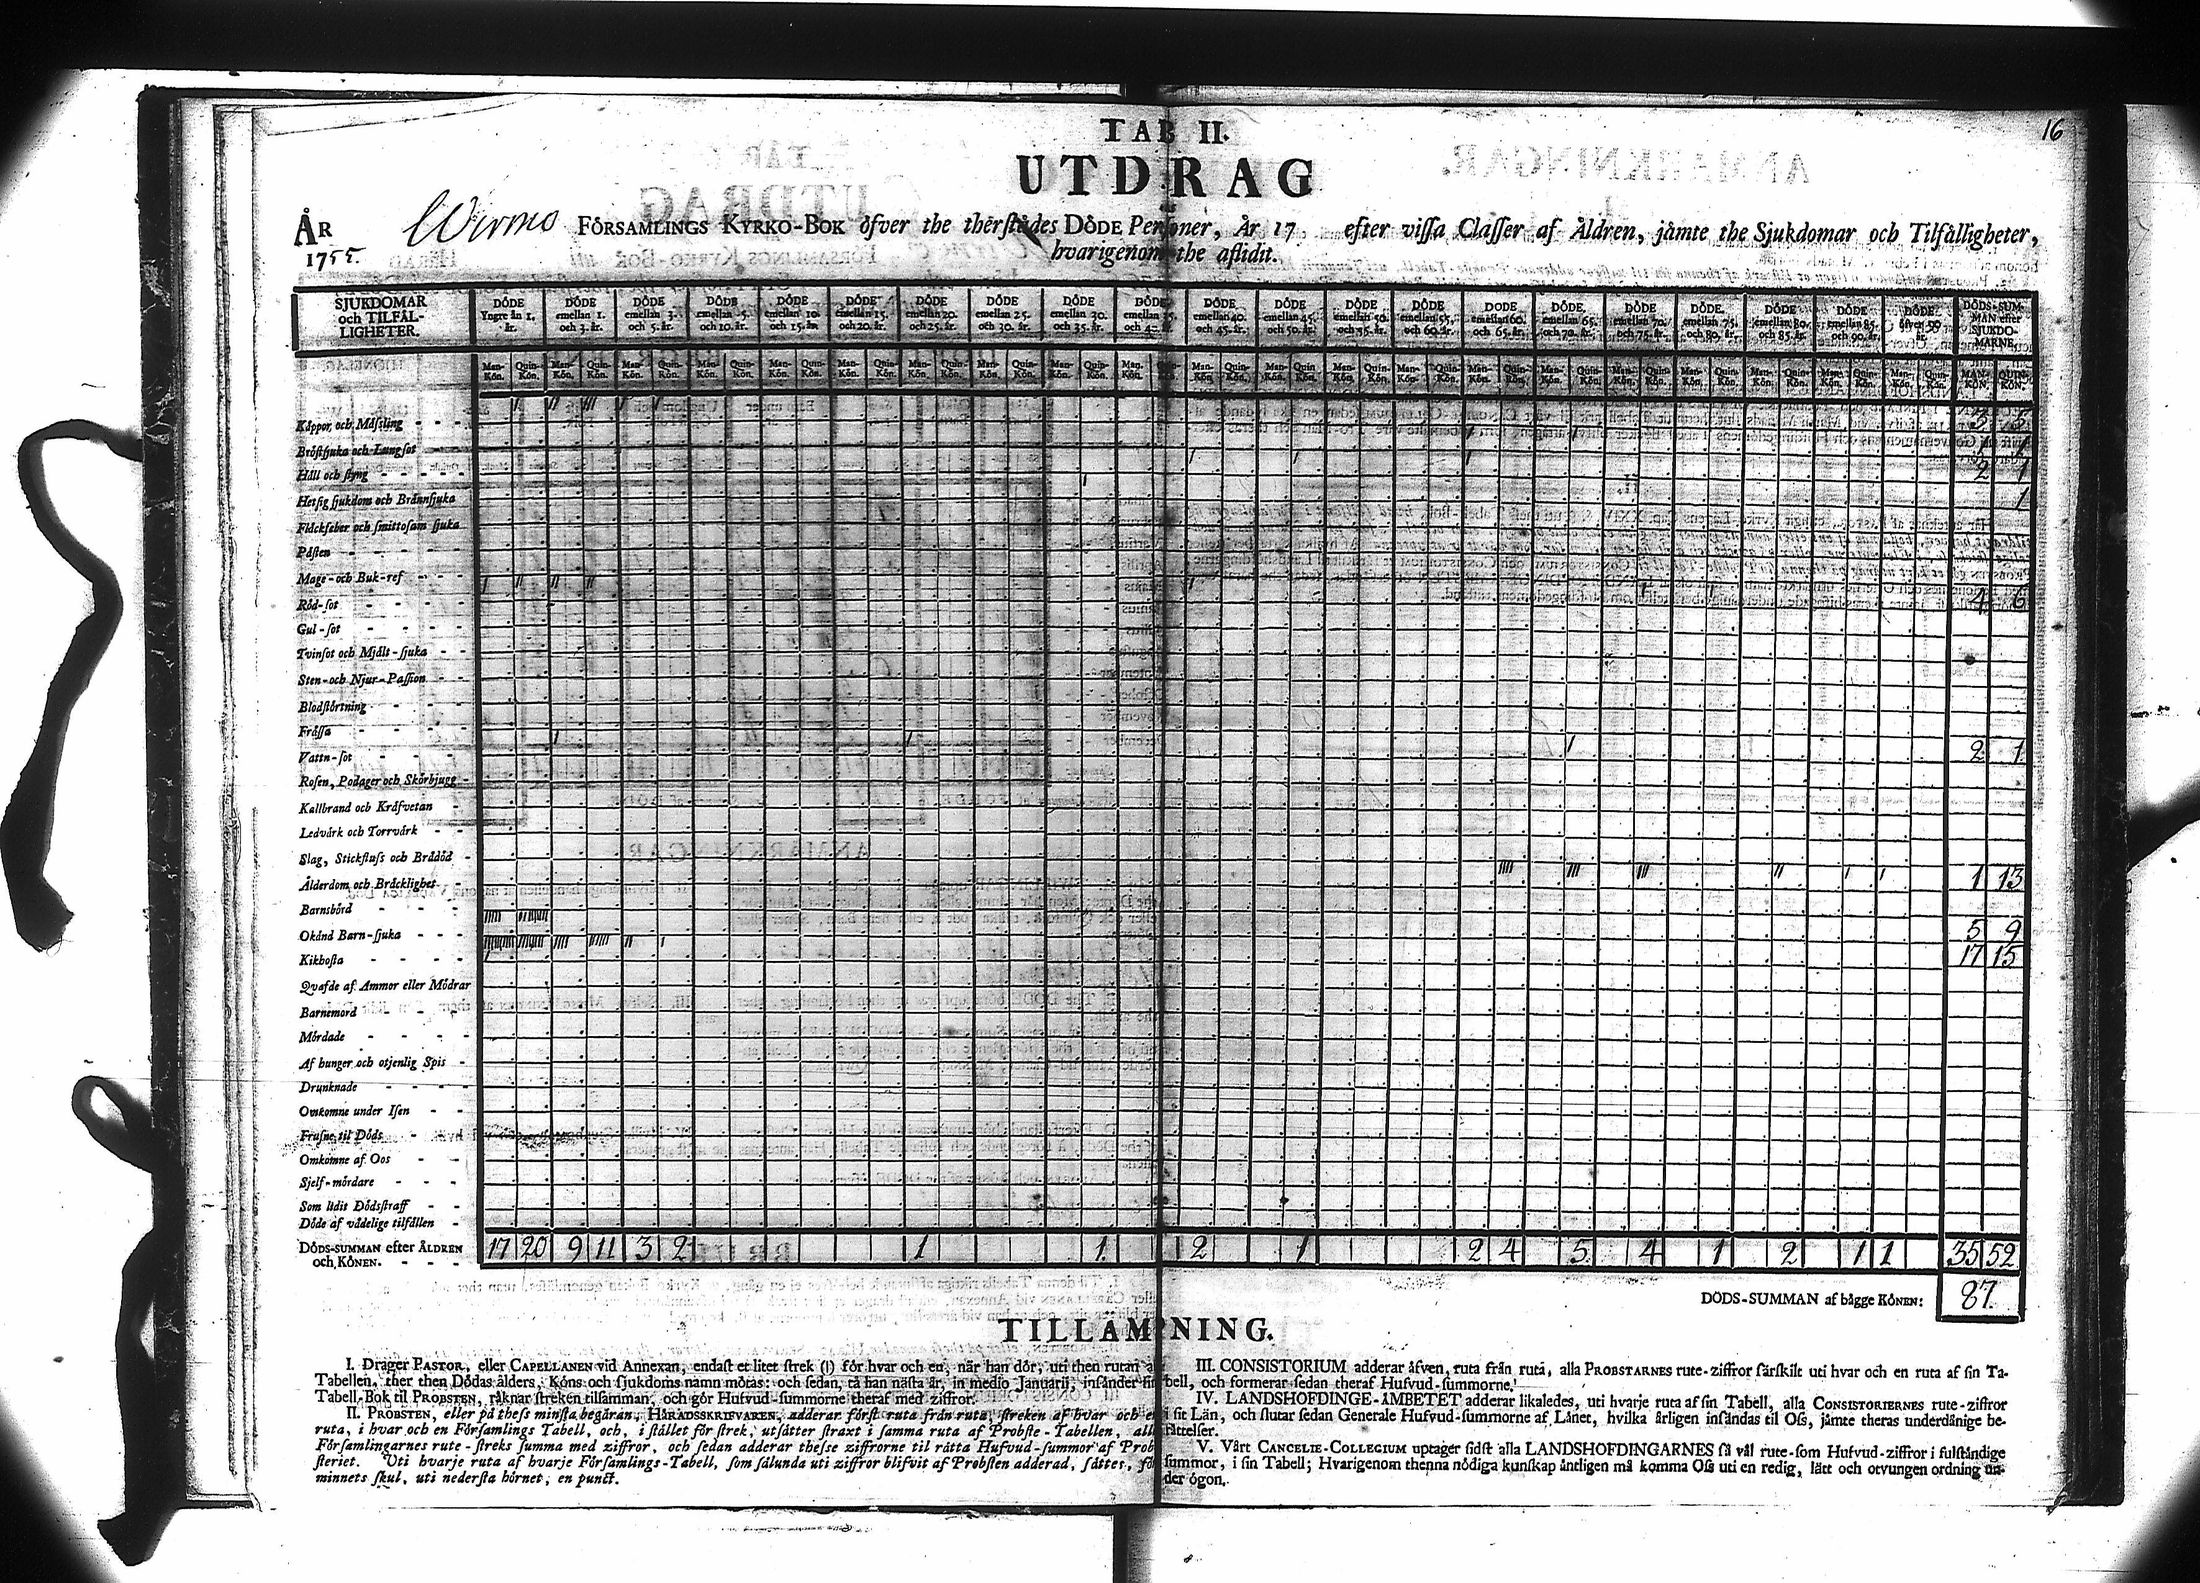 16
TAB II.
UTDRAG
ÅR
1755.
Wirmo FÖRSAMLINGS KYRKO-BOK öfver the thérstädes DÖDE Personer, År 17 efter vissa Classer af Åldren, jämte the Sjukdomar och Tilfälligheter,
hvarigenom the aflidit.
SJUKDOMAR och TILFÄLLIGHETER.
DÖDE Yngre än 1. år.
DÖDE emellan 1. och 3. år.
DÖDE emellan 3. och 5. år.
DÖDE emellan 5. och 10. år.
DÖDE emellan 10. och 15. år.
DÖDE emellan 15. och 20. år.
DÖDE emellan 20. och 25. år.
DÖDE emellan 25. och 30. år.
DÖDE emellan 30. och 35. år.
DÖDE emellan 35. och 4 år.
DÖDE emellan 40. och 45. år.
DÖDE emellan 45. och 50. år.
DÖDE emellan 50. och 55. år.
DÖDE emellan 55. och 60. år.
DÖDE emellan 60. och 65. år.
DÖDE emellan 65. och 70. år.
DÖDE emellan 70. och 75. år.
DÖDE emellan 75. och 80. år.
DÖDE emellan 80. och 85. år.
DÖDE emellan 85. och 90. år.
DÖDE öfver 90 år.
DÖDS-SUMMAN efter SJUKDOMARNE.
Man-Kön. Quin-Kön.
MAN-KÖN. QUIN-KÖN.
Koppor och Mässling 3 5
Bröstsjuka och Lungsot
Håll och styng 2 1
Hetsig sjukdom och Brännsjuka 1
Fläckfeber och smittosam sjuka
Påsten
Mage-och Buk-ref
Röd-sot 4 6
Gul-sot
Tvinsot och Mjält-sjuka
Sten-och Njur-Passion
Blodstörtning
Frässa
Vattn-sot 2 1
Rosen, Podager och Skörbjugg
Kallbrand och Kräfvetan
Ledvärk och Torrvärk
Slag, Stickfluss och Brådöd
Ålderdom och Bräcklighet 1 13
Barnsbörd
Okänd Barn-sjuka 5 9
Kikhosta 17 15
Qvafde af Ammor eller Mödrar
Barnemord
Mördade
Af hunger och otjenlig Spis
Drunknade
Omkomne under Isen
Frusne til Döds
Omkomne af Oos
Sjelf-mördare
Som lidit Dödsstraff
Döde af vådelige tilfällen
DÖDS-SUMMAN efter ÅLDREN och KÖNEN. 17 20 9 11 3 2 1 1 2 1 2 4 5 4 1 2 1 1 35 52
DÖDS-SUMMAN af bägge KÖNEN: 87.
TILLÄMPNING.
I. Drager PASTOR, eller CAPELLANEN vid Annexan, endast et litet strek (l) för hvar och en, när han dör, uti then rutan a
Tabellen, ther then Dödas ålders, Köns och sjukdoms namn mötas: och sedan, tå han nästa år, in medio Januarii, insänder sin
Tabell-Bok til PROBSTEN, räknar streken tillsamman, och gör Hufvud-summorne theraf med ziffror.
II. PROBSTEN, eller på thess minsta begäran, HÄRADSSKRIFVAREN, adderar först ruta från ruta, streken af hvar och en
ruta, i hvar och en Församlings Tabell, och, i stället för strek, utsätter straxt i samma ruta af Probste-Tabellen, all
Församlingarnes rute-streks summa med ziffror, och sedan adderar thesse ziffrorne til rätta Hufvud-summor af Prob
steriet. Uti hvarje ruta af hvarje Församlings-Tabell, som sålunda uti ziffror blifvit af Probsten adderad, sättes, fö
minnets skul, uti nedersta hörnet, en punct.
III. CONSISTORIUM adderar äfven, ruta från ruta, alla PROBSTARNES rute-ziffror särskilt uti hvar och en ruta af sin Ta-
bell, och formerar sedan theraf Hufvud-summorne.
IV. LANDSHÖFDINGE-ÄMBETET adderar likaledes, uti hvarje ruta af sin Tabell, alla CONSISTORIERNES rute-ziffror
i sit Län, och slutar sedan Generale Hufvud-summorne af Länet, hvilka årligen insändas til Oss, jämte theras underdånige be-
rättelser.
V. Vårt CANCELIE-COLLEGIUM uptager sidst alla LANDSHÖFDINGARNES så väl rute-som Hufvud-ziffror i fulständige
summor, i sin Tabell; Hvarigenom thenna nödiga kunskap äntligen må komma Oss uti en redig, lätt och otvungen ordning un-
der ögon.